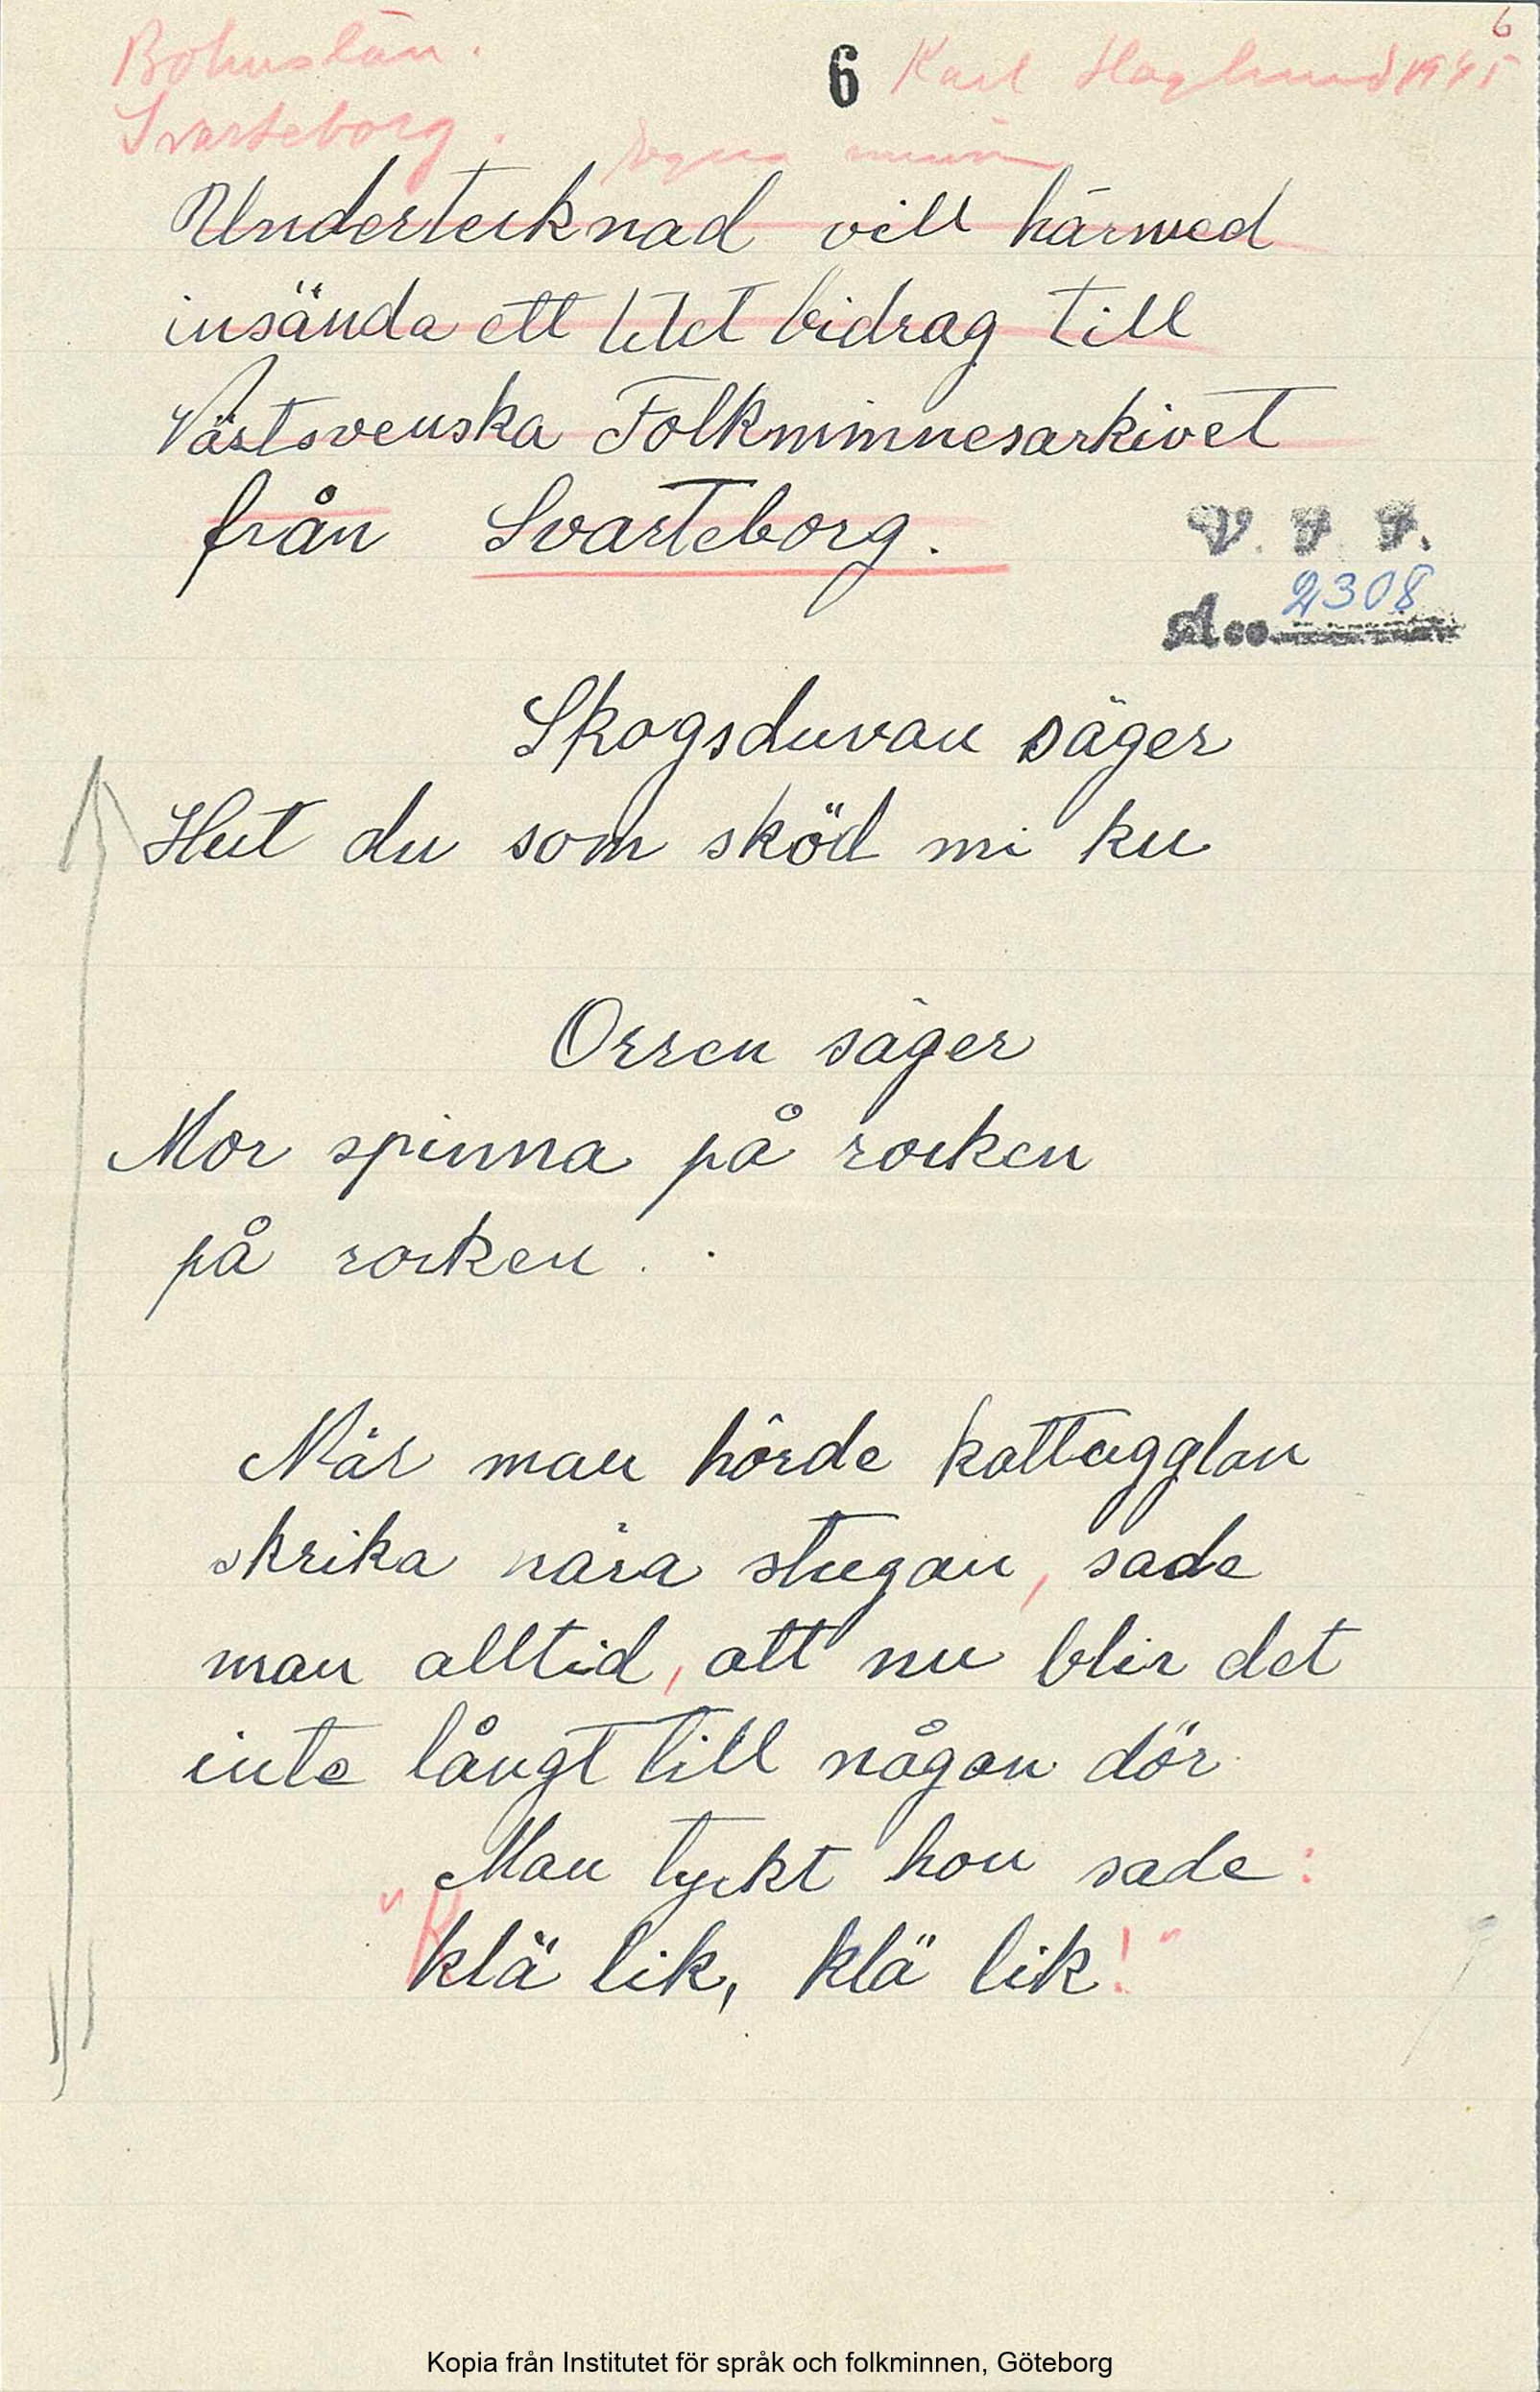 6
Bohuslän. 6 Karl Haglund 1945
Svarteborg. Egna minnen
Undertecknad vill härmed
insända ett litet bidrag till
Västsvenska Folkminnesarkivet
från Svarteborg.
V. F. F.
Acc. 2308
Skogsduvan säger
Hut du som sköd mi ku
Orren säger
Mor spinna på rocken
på rocken.
När man hörde kattugglan
skrika nära stugan, sade
man alltid, att nu blir det
inte långt till någon dör
Man tyckt hon sade:
"Klä lik, klä lik!"
Kopia från Institutet för språk och folkminnen, Göteborg